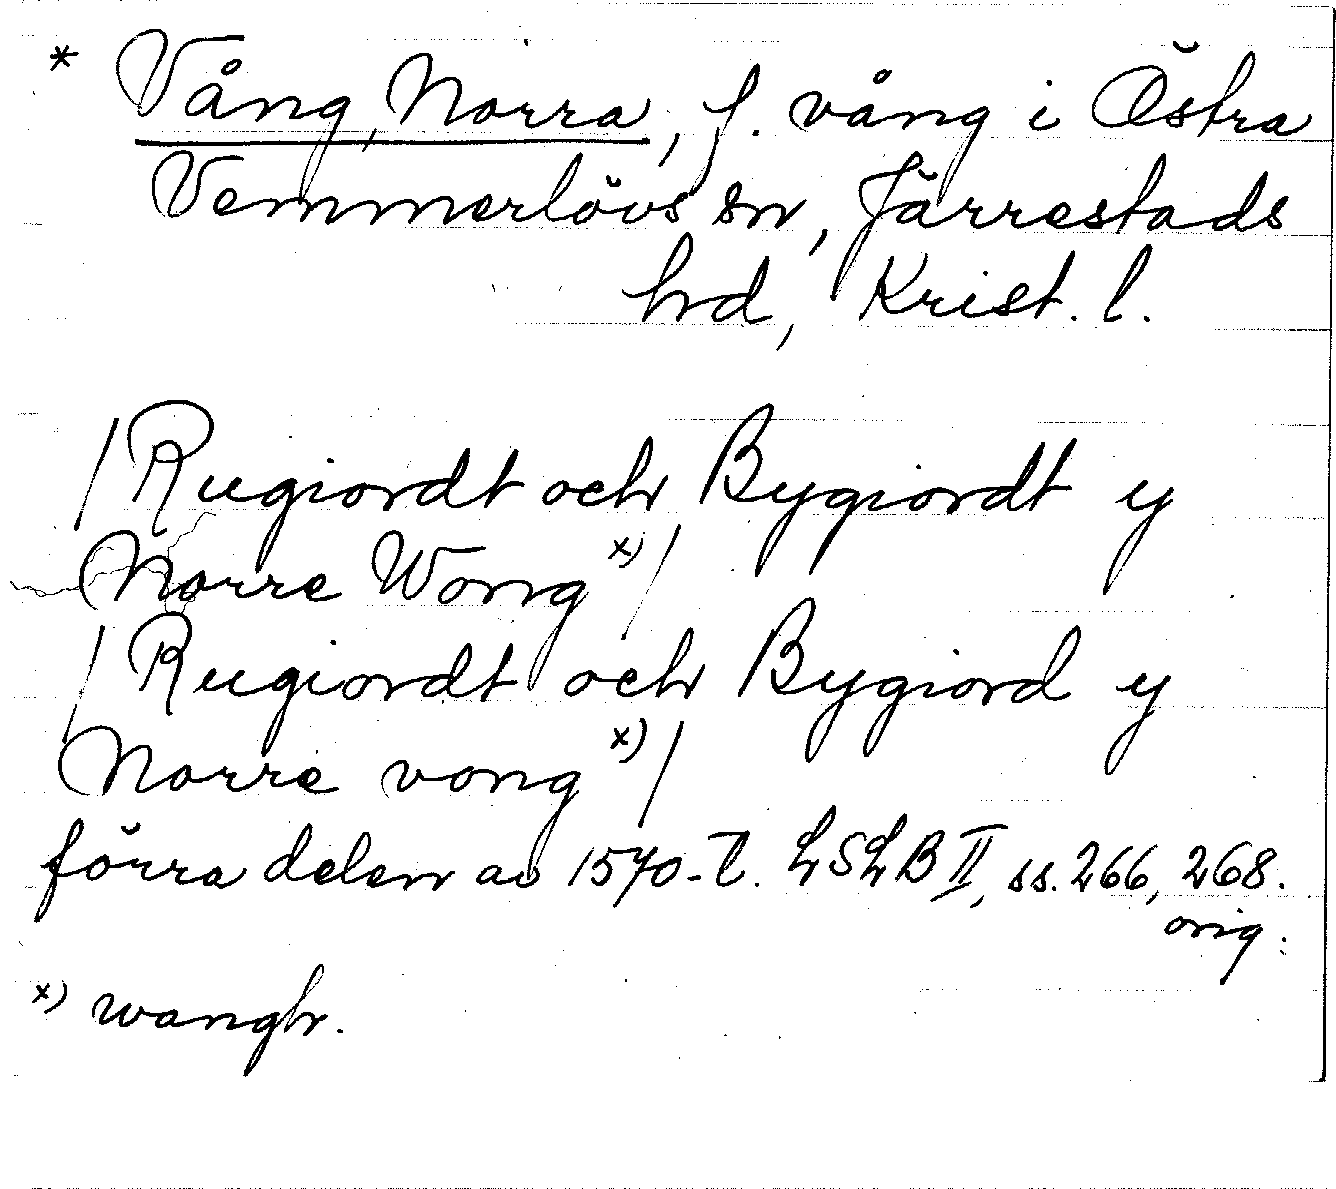 * Vång, Norra, f. vång i Östra
Vemmerlövs sn, Järrestads
hrd, Krist. l.
/Rugiordt och Bygiordt y
Norre Wong x)/
/Rugiordt och Bygiord y
Norre vong x)/
förra delen av 1570-t. LSLB II, ss. 266, 268.
orig.
x) wangh.